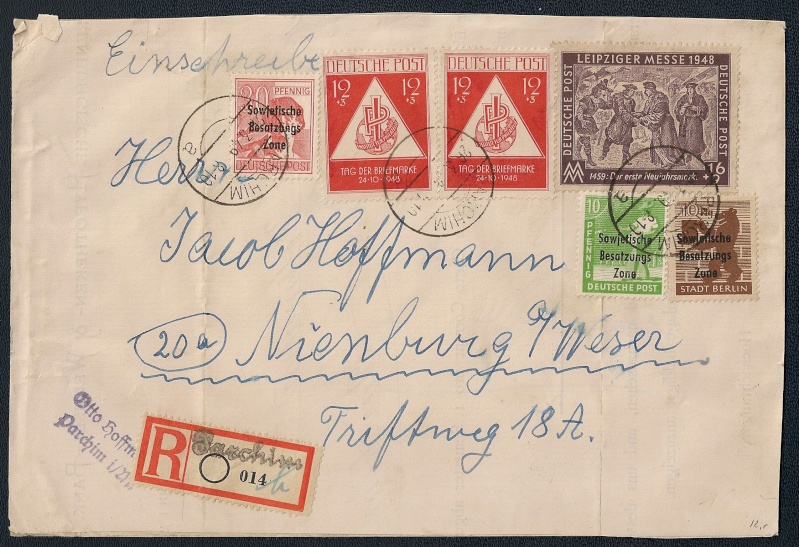 Einschreiben
80 PFENNIG
Sowjetische
Besatzungs
Zone
DEUTSCHE POST
DEUTSCHE POST
12 12
+3 +3
TAG DER BRIEFMARKE
24·10·1948
DEUTSCHE POST
12 12
+3 +3
TAG DER BRIEFMARKE
24·10·1948
LEIPZIGER MESSE 1948
DEUTSCHE POST
DEUTSCHE POST
16
+9
1459: Der erste Neujahrsmarkt
10
PFENNIG
Sowjetische
Besatzungs
Zone
DEUTSCHE POST
10
Sowjetische
Besatzungs
Zone
STADT BERLIN
PARCHIM
PARCHIM
PARCHIM
a
Herrn
Jacob Hoffmann
20a Nienburg a/Weser
Triftweg 18A.
Otto Hoffm
Parchim i/
R
Parchim
014
12,-